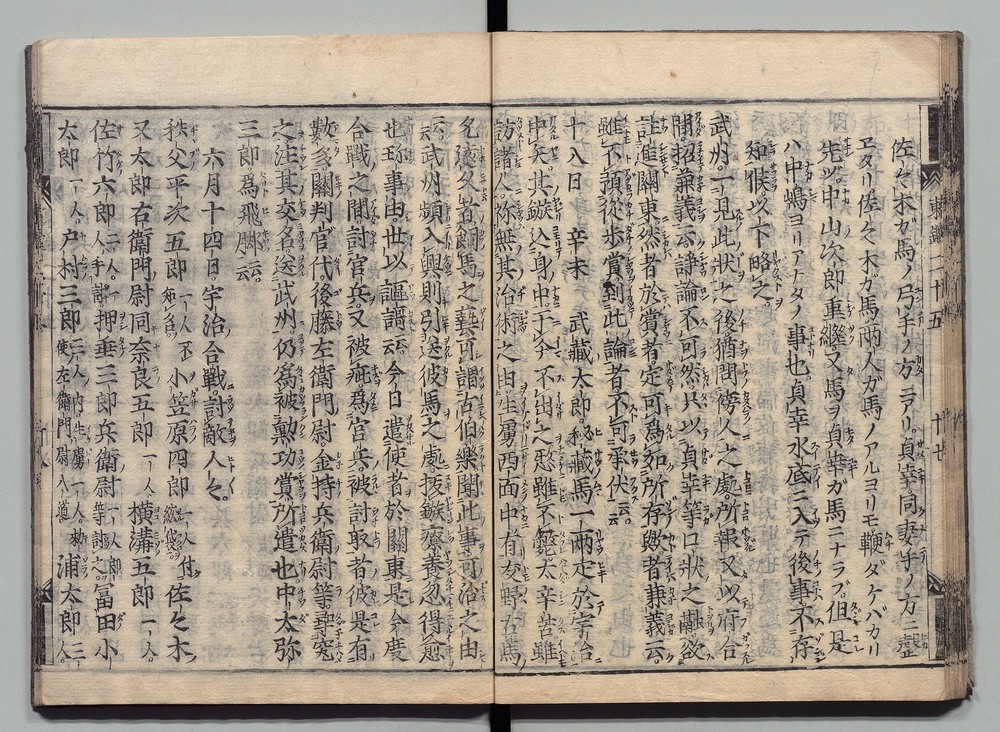 佐々木ガ馬ノ弓手ノ方ニアリ。貞幸同妻手ノ方ニ
ヱタリ佐々木ガ馬兩人ガ馬ノアルヨリモ鞭ダケバカリ
先ツ中山次郎重繼又馬ヲ貞幸ガ馬ニナラブ。但是
ハ中嶋ヨリアナタノ事也貞幸水底ニ入テ後事不存
知候以下略之
武州。一見此狀之後猶問傍人之處所報又以府合
間招兼義云諍論不可然只以貞幸等口狀之
註進關東然者於賞者定可爲如所存歟者兼義云。
雖不預縱步賞到此論者不可承伏云云。
十八日辛未武藏太郎。秘藏馬一兩疋於宇治
中矢。其鏃込身中于今不出之愁雖不斃太辛苦雖
訪諸人。弥無其治術之由生虜西面中有友野右馬
允遠久者飼馬之藝可謂古伯樂聞此事可治之由
云云武州頻入興則引送彼馬之處拔鏃療養忽得愈
也珍事由。世以謳謌云云今日遣使者於關東是今度
合戰之間討官兵。又被疵爲官兵。被討取者彼是有
數多關判官代後藤左衛門尉金持兵衛尉等尋究
之注其交名送武州仍爲被勳功賞所遣也中太弥
三郎爲飛脚云云。
六月十四日宇治合戰討敵人々。
秩父平次五郎一人不知名。小笠原四郎一人付佐々木
又太郎右衛門尉同奈良五郎一人橫溝五郎一人。
佐竹六郎二人。押垂三郎兵衛尉一人郎等討之。冨田小
太郎一人。戸村三郎二人内生虜一人。使左衛門尉入道浦太郎三人。
東鑑二十五